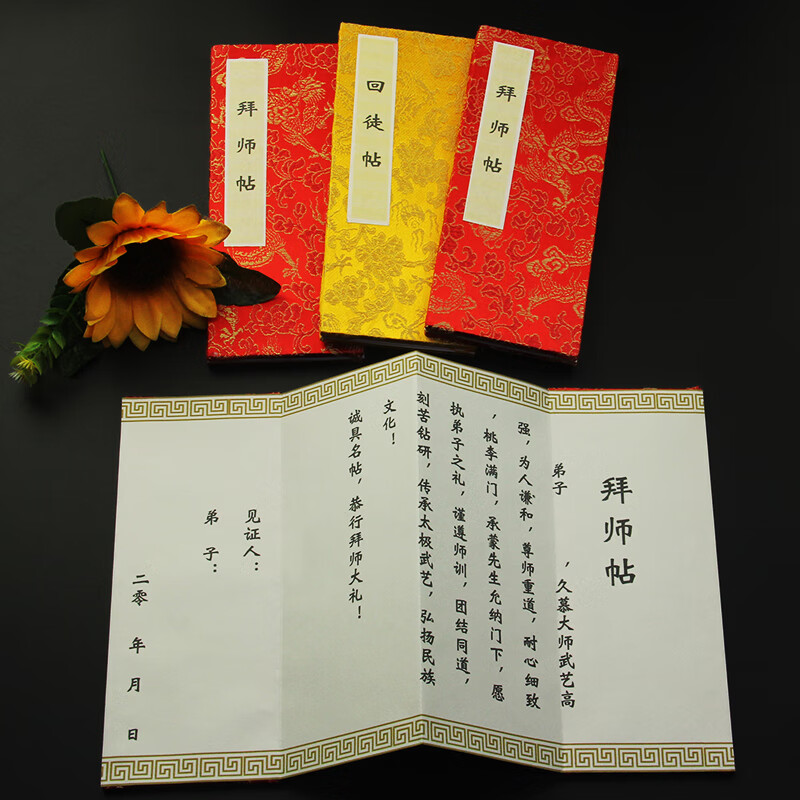 拜师帖
回徒帖
拜师帖
拜师帖
弟子 ，久慕大师武艺高
强，为人谦和，尊师重道，耐心细致
，桃李满门，承蒙先生允纳门下，愿
执弟子之礼，谨遵师训，团结同道，
刻苦钻研，传承太极武艺，弘扬民族
文化！
诚具名帖，恭行拜师大礼！
见证人：
弟子：
二零 年 月 日